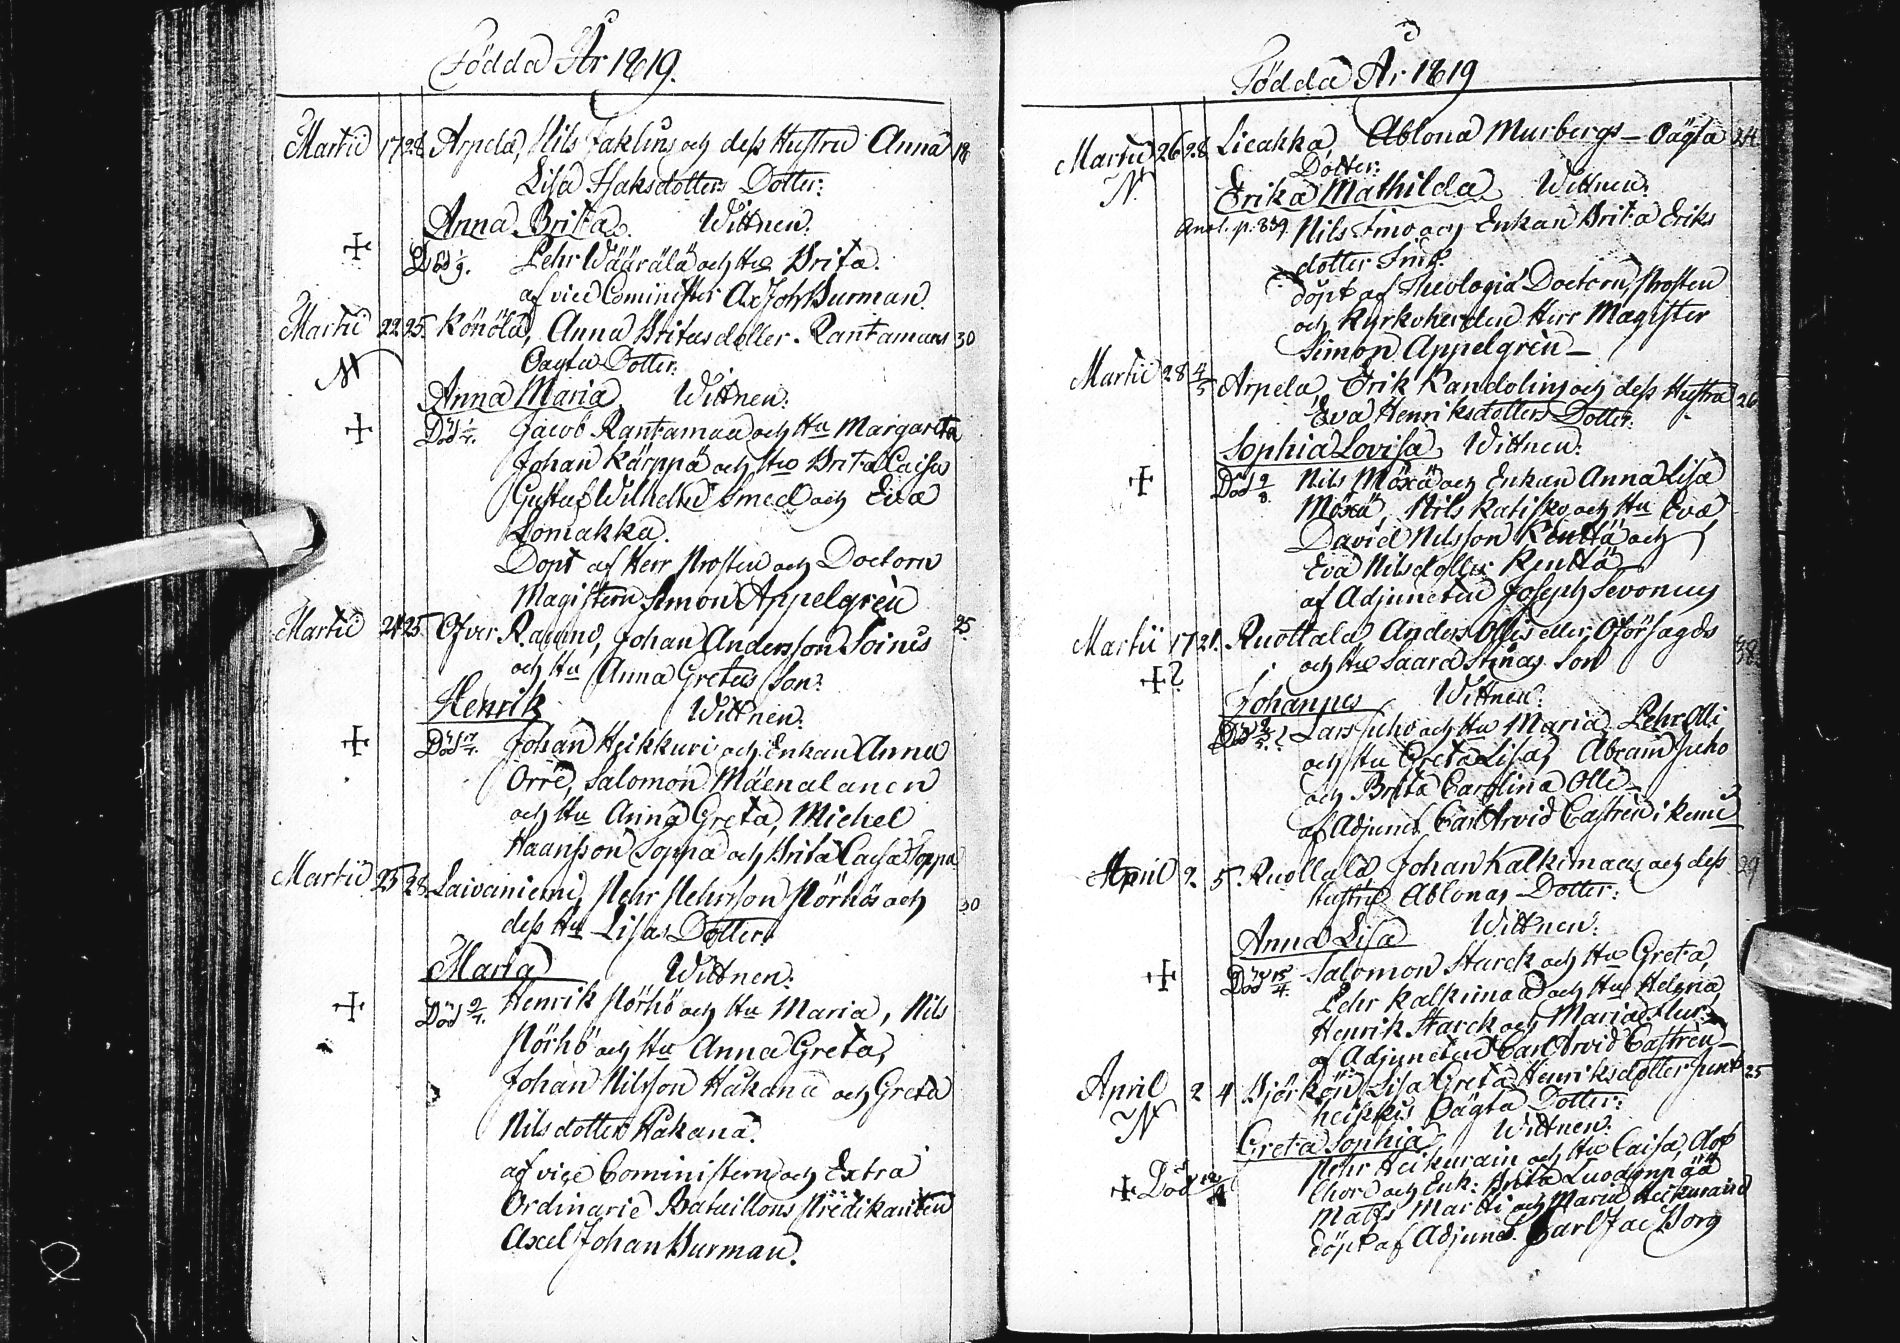 Födda År 1819.
Martii 17 28 Arpela, Nils Jaklins och dess Hustru Anna 18
Lisa Isaksdotters Dotter:
Anna Brita. Wittnen:
Död Pehr Wäärälä och Hu Brita.
af vice Cominister Ax Joh Burman
Martii 22 25. Könölä, Anna Britasdotter Rantamaas 30
N Oägta Dotter:
Anna Maria Wittnen:
Död Jacob Rantamaa och Hu Margareta
Johan Kärppä och Hu Brita Caisa
Gustaf Wilhelm Smed och Eva
Lomakka.
Döpt af Herr Prosten och Doctorn
Magistern Simon Appelgren
Martii 24 25. Öfver Raumo, Johan Andersson Soinis 25
och Hu Anna Gretas Son:
Henrik Wittnen:
Död Johan Heikkuri och Enkan Anna
Orre, Salomon Mäenalanen
och Hu Anna Greta, Michel
Haansson Soppa och Brita Caisa Soppa
Martii 25 28. Laivaniemi, Pehr Pehrsson Pörhös och 30
dess Hu Lisas Dotter:
Maria Wittnen:
Död Henrik Pörhö och Hu Maria, Nils
Pörhö och Hu Anna Greta,
Johan Nilsson Hakana och Greta
Nilsdotter Hakana.
af vice Cominister och Extra
Ordinarie Bataillons Predikanten
Axel Johan Burman.
Födda År 1819
Martii 26 28 Lieakka, Ablona Murbergs Oägta 24
N Dotter:
Erika Mathilda Wittnen:
Anot. p. 839 Nils Fino och Enkan Brita Eriks
dotter
döpt af Theologiæ Doctorn, Prosten
och Kyrkoherden Herr Magister
Simon Appelgren
Martii 28 4/5 Arpela, Erik Kandolins och dess Hustru 26
Eva Henriksdotters Dotter.
Sophia Lovisa Wittnen:
Död Nils Möxä och Enkan Anna Lisa
Möxä, Nils Katisko och Hu Eva
David Nilsson Kenttä och
Eva Nilsdotter Kenttä
af Adjuncten Joseph Sevonius
Martii 17 21. Ruottala, Anders Ollis eller Oförsagds 38
+? och Hu Saara Stinas Son
Johannes Wittnen:
Död Lars Juho och Hu Maria, Pehr Olli
och Hu Greta Lisa, Abram Juho
och Brita Carolina Olli
af Adjunct Carl Arvid Castren i Kemi
April 2. 5. Ruottala, Johan Kalkimaas och dess 29
Hustru Ablonas Dotter:
Anna Lisa Wittnen:
Död 15/4. Salomon Starck och Hu Greta,
Pehr Kalkimaa och Hu Helena
Henrik Starck och Maria
af Adjuncten Carl Arvid Castren
April 2 4 Björkön, Lisa Greta Henriksdotter Junt 25
N heikkis Oägta Dotter:
Greta Sophia Wittnen:
Pehr Heikurain och Hu Caisa, Olof
+ Död och Enk: Brita Luodonpää
Matts Martti och Maria Heikurain
döpt af Adjunct. Carl Jac Borg